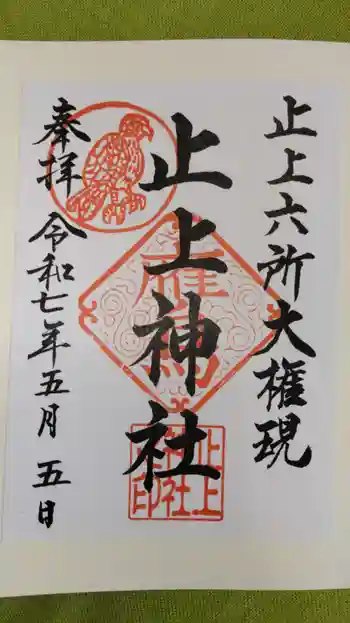 止上六所大権現
止上神社
奉拝
令和七年五月五日
止上
神社